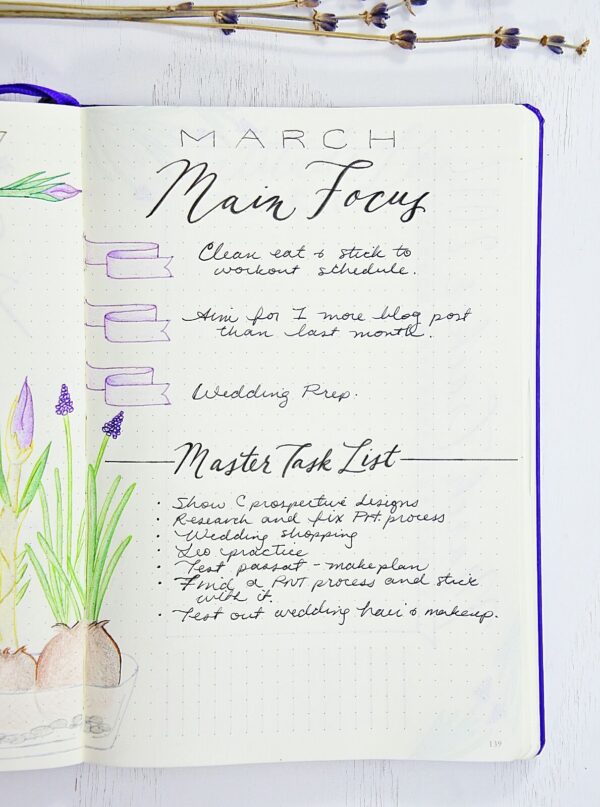 MARCH
Main Focus
Clean eat & stick to
workout schedule.
Aim for 1 more blog post
than last month.
Wedding Prep.
Master Task List
· Show C prospective designs
· Research and fix process
· Wedding shopping
· practice
· Test passat - make plan
· Find a process and stick
with it.
· Test out wedding hair & makeup.
139